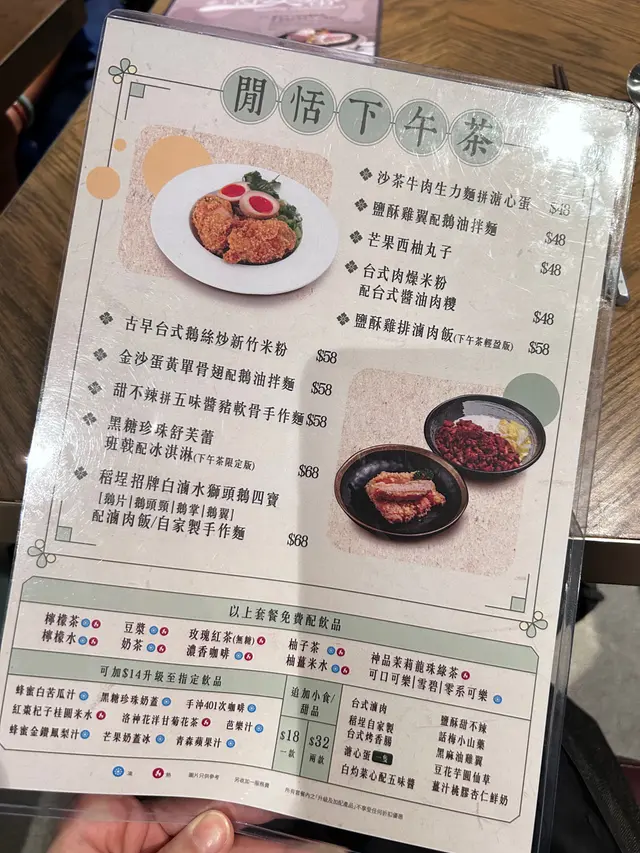 閒恬下午茶
沙茶牛肉生力麵拼溏心蛋 $48
鹽酥雞翼配鵝油拌麵 $48
芒果西柚丸子 $48
台式肉燥米粉
配台式醬油肉糭 $48
鹽酥雞排滷肉飯(下午茶輕盈版) $58
古早台式鵝絲炒新竹米粉 $58
金沙蛋黃單骨翅配鵝油拌麵 $58
甜不辣拼五味醬豬軟骨手作麵 $58
黑糖珍珠舒芙蕾
班戟配冰淇淋(下午茶限定版) $68
稻埕招牌白滷水獅頭鵝四寶
[鵝片|鵝頭頸|鵝掌|鵝翼]
配滷肉飯/自家製手作麵 $68
以上套餐免費配飲品
檸檬茶 豆漿 玫瑰紅茶(無糖) 柚子茶 神品茉莉龍珠綠茶
檸檬水 奶茶 濃香咖啡 柚薑米水 可口可樂|雪碧|零系可樂
可加$14升級至指定飲品
蜂蜜白苦瓜汁 黑糖珍珠奶蓋 手沖401次咖啡
紅棗杞子桂圓米水 洛神花洋甘菊花茶 芭樂汁
蜂蜜金鑽鳳梨汁 芒果奶蓋冰 青森蘋果汁
追加小食/
甜品
$18
一款
$32
兩款
台式滷肉 鹽酥甜不辣
稻埕自家製
台式烤香腸 話梅小山藥
溏心蛋 黑麻油雞翼
豆花芋圓仙草
白灼菜心配五味醬 薑汁桃膠杏仁鮮奶
凍 熱 圖片只供參考 另收加一服務費 所有套餐內之「升級及加配食品」不享受任何折扣優惠